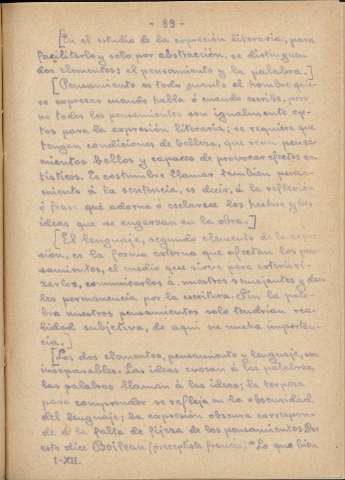 - 89 -
[En el estudio de la expresión literaria, para
facilitarlo y solo por abstracción, se distinguen
dos elementos: el pensamiento y la palabra.]
[Pensamiento es todo cuanto el hombre quie-
re expresar cuando habla ó cuando escribe, pero
no todos los pensamientos son igualmente ap-
tos para la expresión literaria; se requiere que
tengan condiciones de belleza, que sean pensa-
mientos bellos y capaces de provocar efectos ar-
tísticos. Es costumbre llamar tambien pensa-
miento á la sentencia, es decir, á la reflexión
ó frase que adorna ó esclarece los hechos y las
ideas que se engarzan en la obra.]
[El lenguaje, segundo elemento de la expre-
sión, es la forma externa que afectan los pen-
samientos, el medio que sirve para exteriori-
zarlos, comunicarlos á nuestros semejantes y dar-
les permanencia por la escritura. Sin la pala-
bra nuestros pensamientos solo tendrían rea-
lidad subjetiva, de aqui su mucha importan-
cia.]
[Los dos elementos, pensamiento y lenguaje, son
inseparables. Las ideas evocan á las palabras,
las palabras llaman á las ideas; la torpeza
para comprender se refleja en la obscuridad
del lenguaje; la expresión obscura correspon-
de á la falta de fijeza de los pensamientos. Por
esto dice Boileau (preceptista francés) "Lo que bien
I-XII.